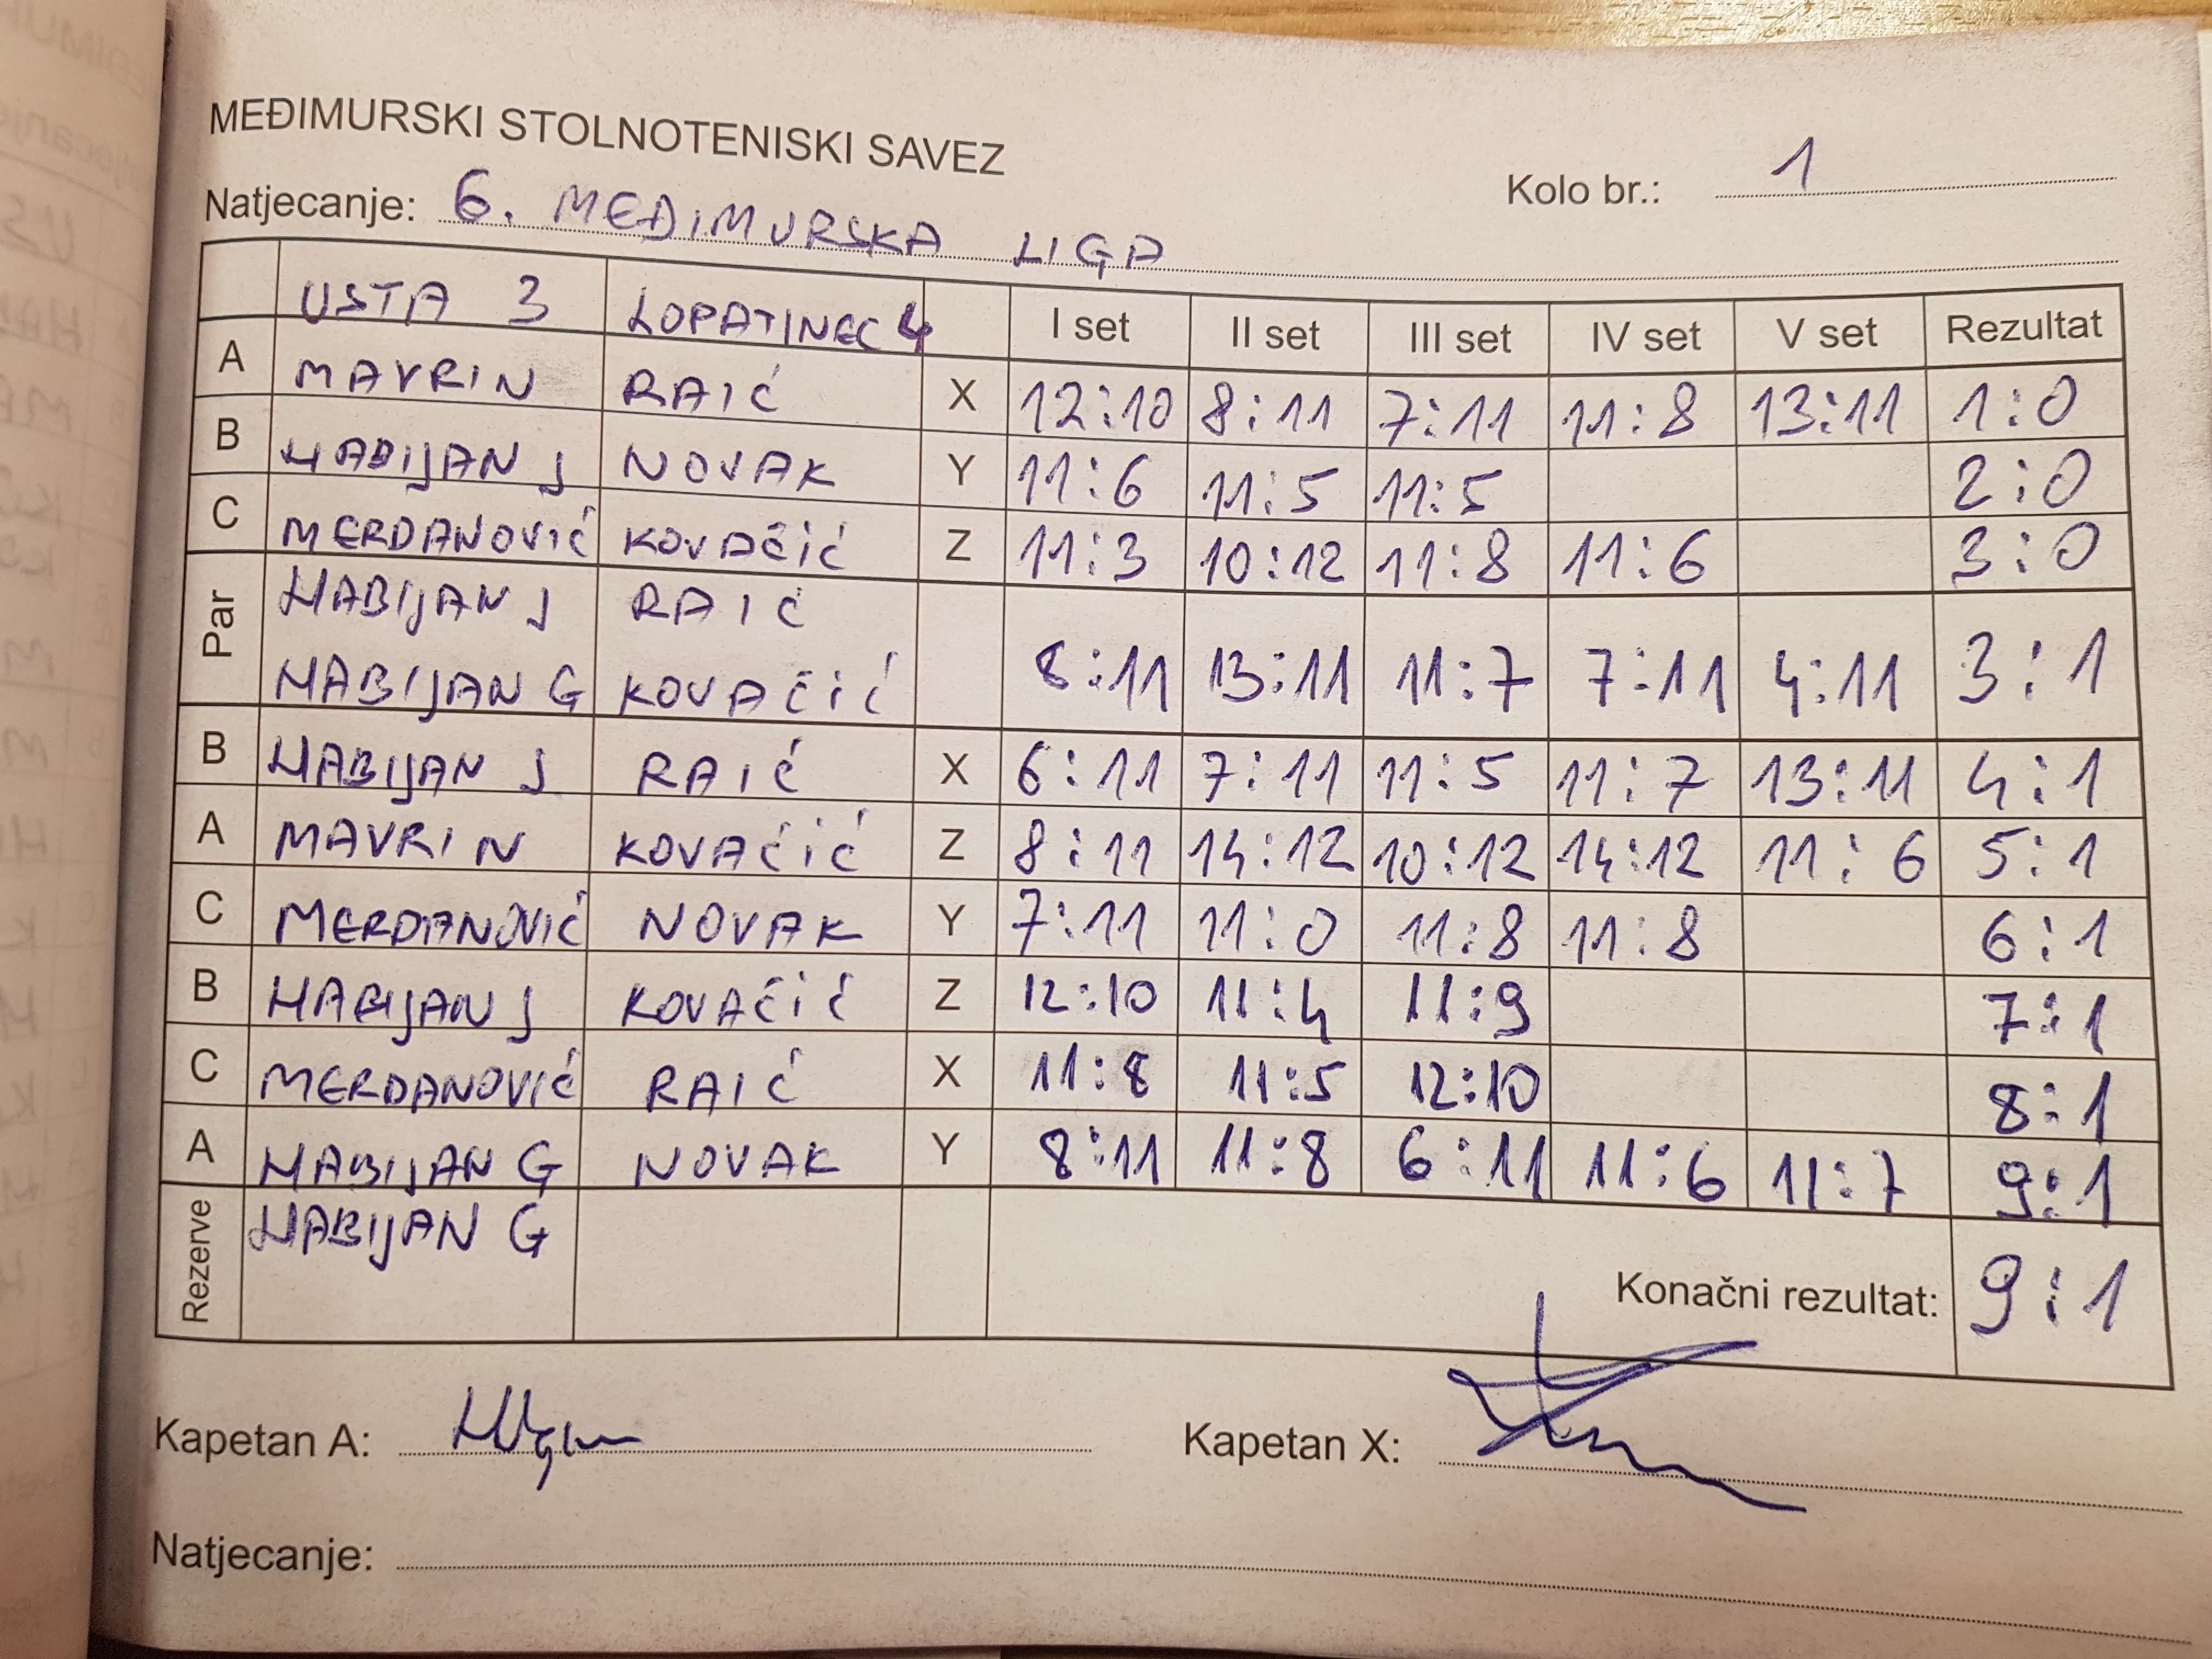 MEĐIMURSKI STOLNOTENISKI SAVEZ
Kolo br.: 1
Natjecanje: 6. MEĐIMURSKA LIGA
USTA 3 LOPATINEC 4 I set II set III set IV set V set Rezultat
A MAVRIN RAIĆ X 12:10 8:11 7:11 11:8 13:11 1:0
B HABIJAN J NOVAK Y 11:6 11:5 11:5 2:0
C MERDANOVIĆ KOVAČIĆ Z 11:3 10:12 11:8 11:6 3:0
Par HABIJAN J RAIĆ
HABIJAN G KOVAČIĆ 8:11 13:11 11:7 7:11 4:11 3:1
B HABIJAN J RAIĆ X 6:11 7:11 11:5 11:7 13:11 4:1
A MAVRIN KOVAČIĆ Z 8:11 14:12 10:12 14:12 11:6 5:1
C MERDANOVIĆ NOVAK Y 7:11 11:0 11:8 11:8 6:1
B HABIJAN J KOVAČIĆ Z 12:10 11:4 11:9 7:1
C MERDANOVIĆ RAIĆ X 11:8 11:5 12:10 8:1
A HABIJAN G NOVAK Y 8:11 11:8 6:11 11:6 11:7 9:1
Rezerve HABIJAN G
Konačni rezultat: 9:1
Kapetan A: Kapetan X:
Natjecanje: